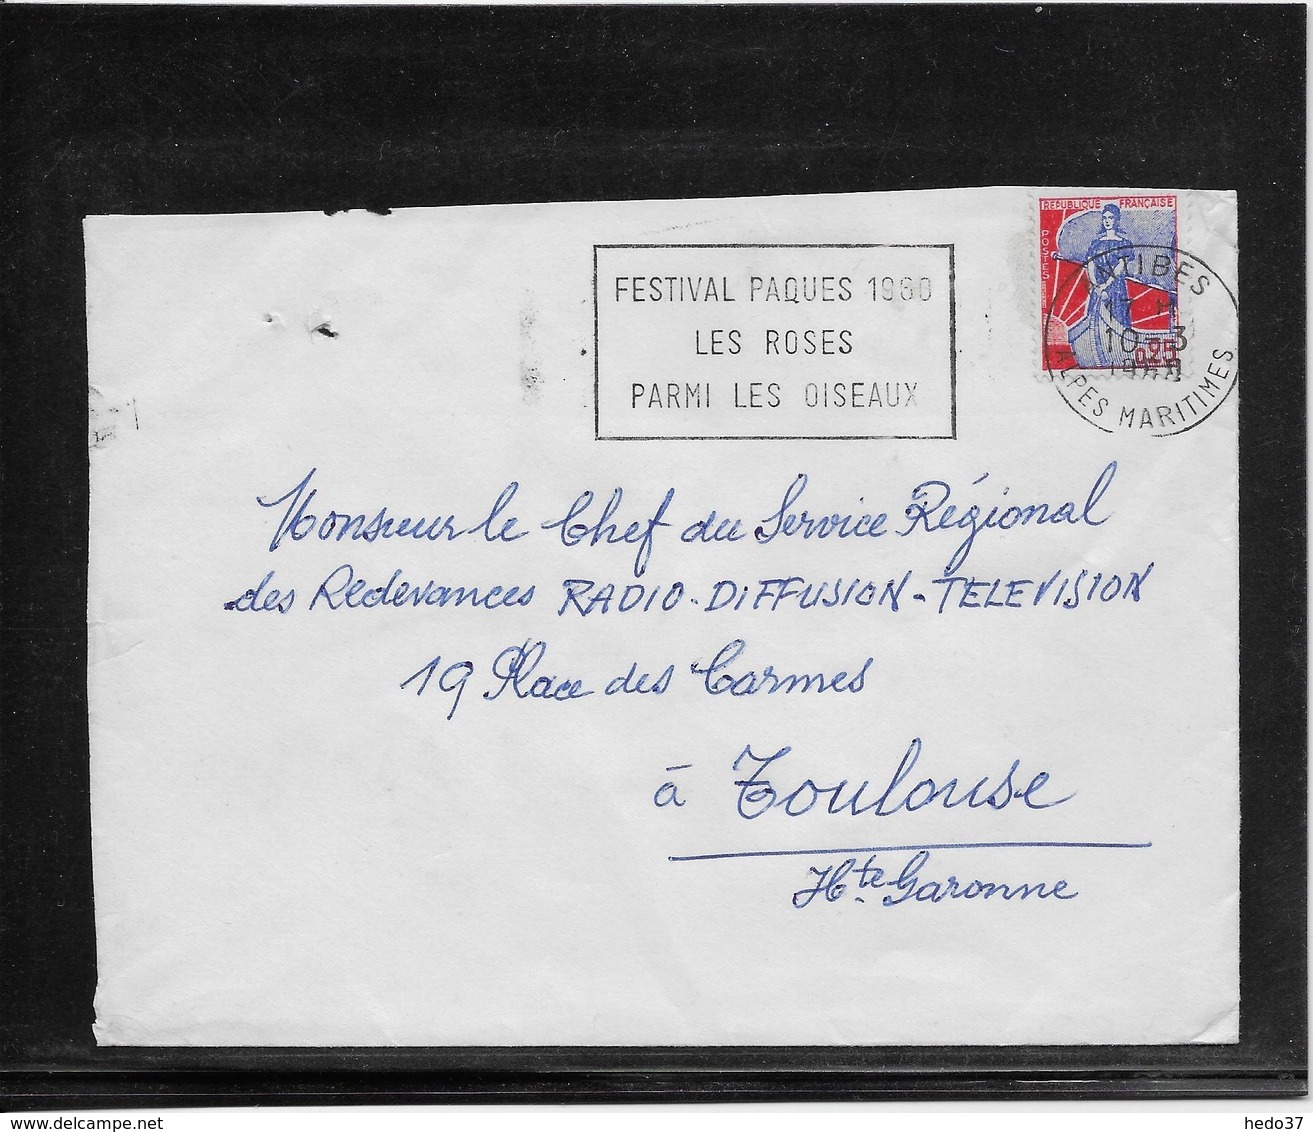 REPUBLIQUE FRANÇAISE
POSTES
0,25
ANTIBES
17 H
10 - 3
1960
ALPES MARITIMES
FESTIVAL PAQUES 1960
LES ROSES
PARMI LES OISEAUX
Monsieur le Chef du Service Régional
des Redevances RADIO-DIFFUSION-TELEVISION
19 Place des Carmes
à Toulouse
Hte. Garonne
www.delcampe.net
hedo37